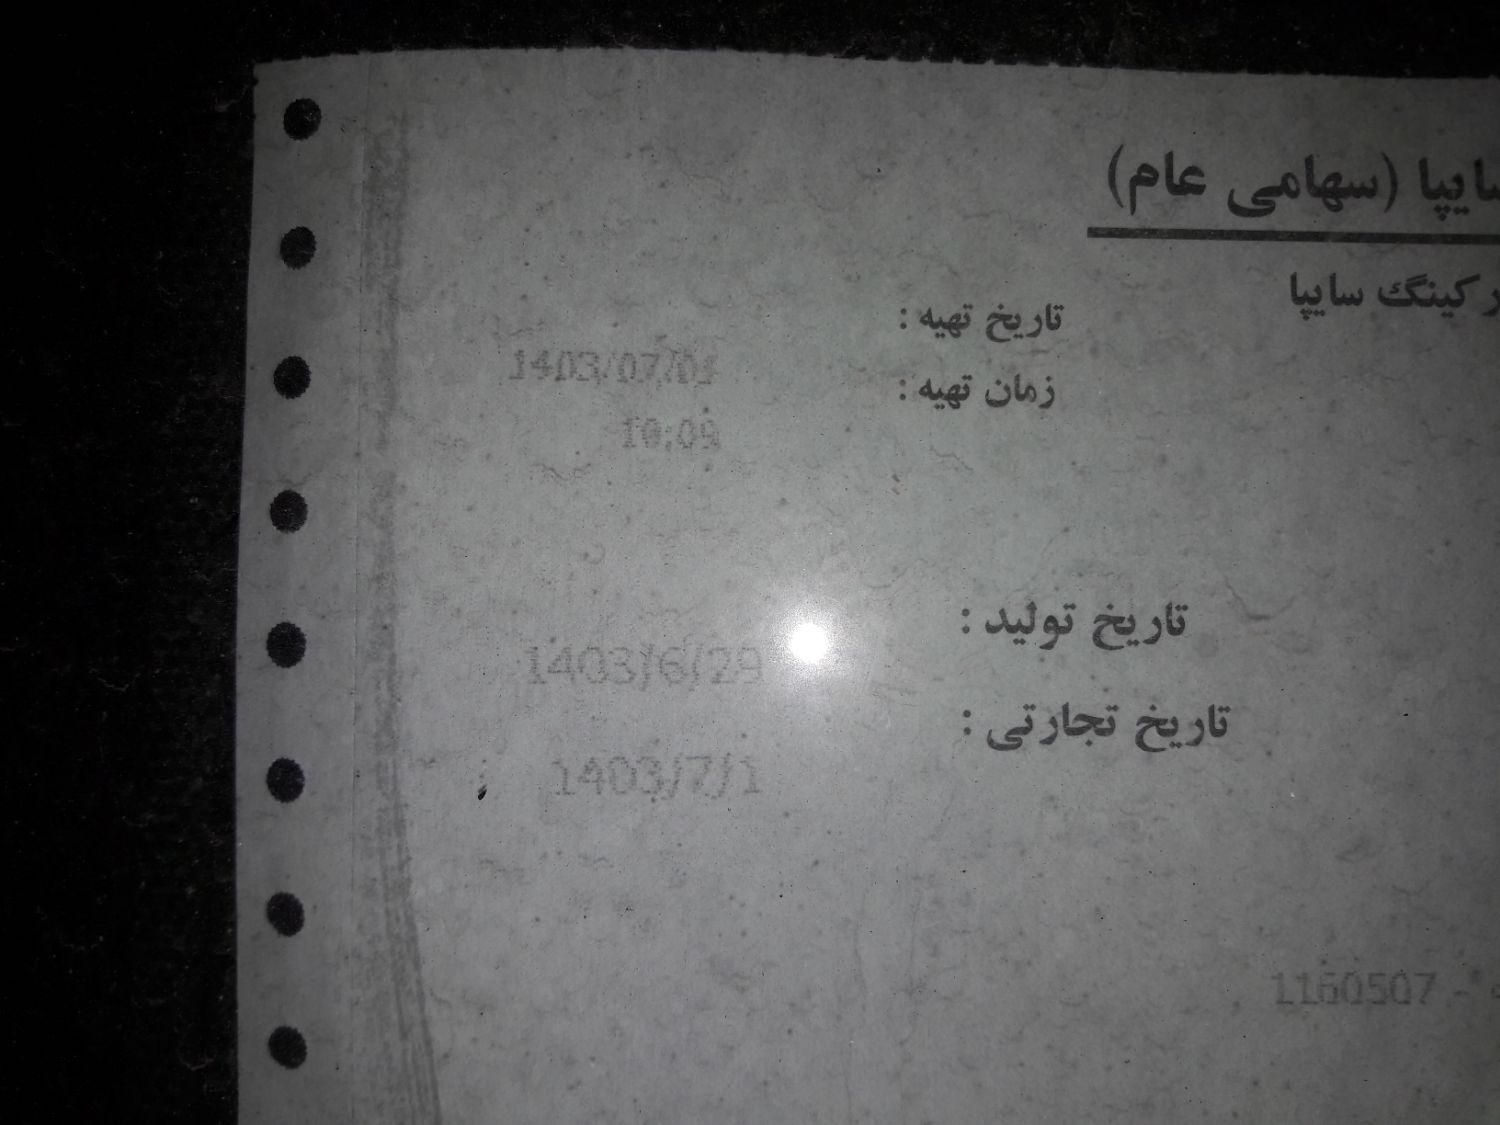 سایپا (سهامی عام)
پارکینگ سایپا
تاریخ تهیه :
1403/07/01
زمان تهیه :
10:09
تاریخ تولید :
1403/6/29
تاریخ تجارتی :
1403/7/1
1160507 -